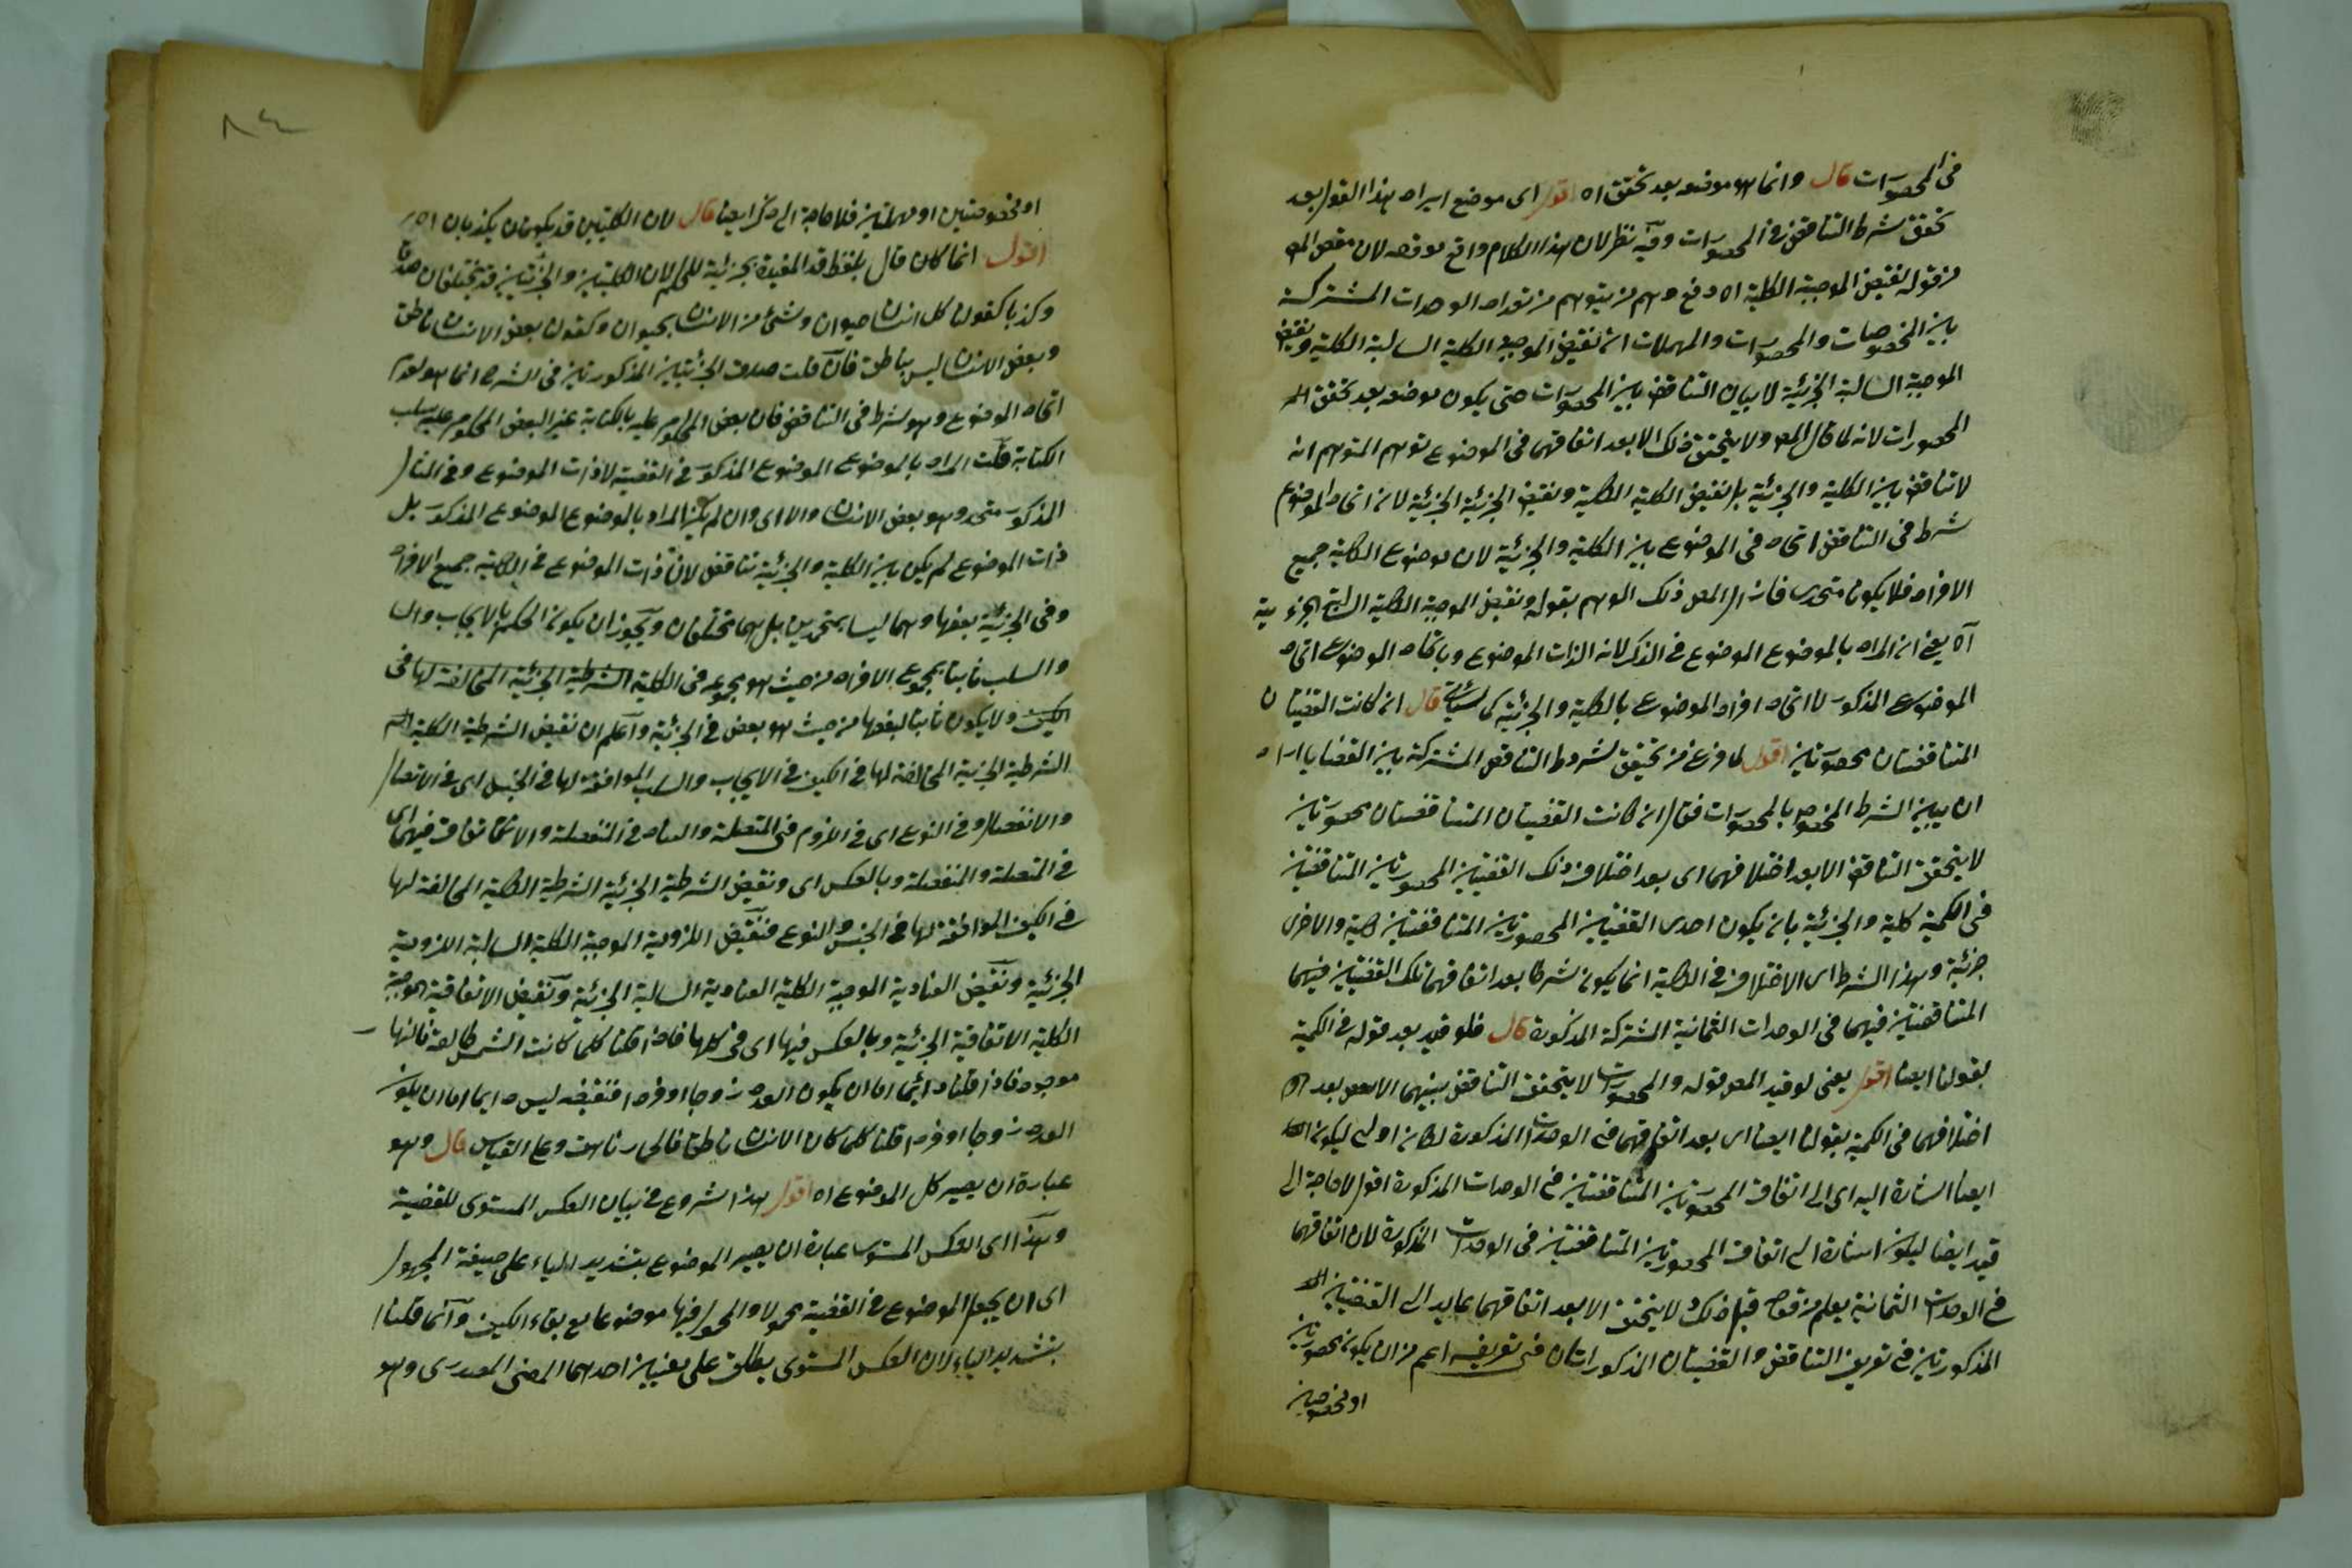 في المحصورات قال وانما هو موضعه بعد تحقق اه اقول اى موضع ايراد هذا القول بعد
تحقق شرط التناقض في المحصورات وفيه نظر لان هذا الكلام واقع موقعه لان مقص المص
من قوله نقيض الموجبة الكلية اه دفع وهم من يتوهم من تعداد الوحدات المشتركة
بين المخصوصات والمحصورات والمهملات ان نقيض الموجبة الكلية السالبة الكلية ونقيض
الموجبة السالبة الجزئية لا بيان التناقض بين المحصورات حتى يكون موضعه بعد تحقق
المحصورات لانه لما قال المص ولا يتحقق ذلك الا بعد اتفاقهما في الموضوع توهم المتوهم انه
لا تناقض بين الكلية والجزئية بل نقيض الكلية الكلية ونقيض الجزئية الجزئية لان اتحاد الموضوع
شرط في التناقض اتحاد في الموضوع بين الكلية والجزئية لان موضوع الكلية جميع
الافراد فلا يكون متحدا فازال المص ذلك الوهم بقوله ونقيض الموجبة الكلية السالبة الجزئية
آه يعنى ان المراد بالموضوع الموضوع في الذكر لانه الذات الموضوع وباتحاد الموضوع اتحاد
الموضوع المذكور لا اتحاد افراد الموضوع بالكلية والجزئية كما سيأتى قال ان كانت القضيتان
المتناقضتان محصورتين اقول لما فرغ من تحقيق شروط التناقض المشتركة بين القضايا اراد
ان يبين الشرط المخصوص بالمحصورات فقال ان كانت القضيتان المتناقضتان محصورتين
لا يتحقق التناقض الا بعد اختلافهما اى بعد اختلاف ذلك القضيتين المحصورتين المتناقضتين
في الكمية كلية والجزئية بان يكون احدى القضيتين المحصورتين المتناقضتين كلية والاخرى
جزئية وهذا الشرط اى الاختلاف في الكلية انما يكون شرطا بعد اتفاقهما تلك القضيتين فيهما
المتناقضتين فيهما في الوحدات الثمانية المشتركة المذكورة قال فلو قيد بعد قوله في الكمية
بقولنا ايضا اقول يعنى لو قيد المص قوله والمحصورات لا يتحقق التناقض بينهما الا بعد
اختلافهما في الكمية بقولنا ايضا اى بعد اتفاقهما في الوحدات المذكورة لكان اولى ليكون
ايضا اشارة اليه اى الى اتفاق المحصورتين المتناقضتين في الوحدات المذكورة اقول لا حاجة الى
قيد ايضا ليكون اشارة الى اتفاق المحصورتين المتناقضتين في الوحدات المذكورة لان اتفاقهما
في الوحدات الثمانية يعلم من قوله قبل ذلك ولا يتحقق الا بعد اتفاقهما عايد الى القضيتين
المذكورتين في تعريف التناقض والقضيتان المذكورتان في تعريفه اعم من ان يكونا محصورتين
او مخصوصتين
٨٤
او مخصوصتين او مهملتين فلا حاجة الى ذكر ايضا قال لان الكليتين قد يكونان يكذبان اه
اقول انما كان قال بلفظ قد المفيدة بجزئية للحكم لان الكليتين والجزئيتين قد يختلفان صدقا
وكذبا كقولنا كل انسان حيوان ولا شئ من الانسان بحيوان وكقولنا بعض الانسان ناطق
وبعض الانسان ليس بناطق فان قلت صدق الجزئيتين المذكورتين في الشرح انما هو لعدم
اتحاد الموضوع وهو شرط في التناقض فان بعض المحكوم عليه بالكتابة غير البعض المحكوم عليه بسلب
الكتابة قلت المراد بالموضوع الموضوع المذكور في القضية لا ذات الموضوع وفي المثال
المذكور متحد وهو بعض الانسان والا اى وان لم يكن المراد بالموضوع الموضوع المذكور بل
ذات الموضوع لم يكن بين الكلية والجزئية تناقض لان ذات الموضوع في الكلية جميع الافراد
وفى الجزئية بعضها وهما ليسا بمتحدين بل هما مختلفان ويجوز ان يكون الحكم بالايجاب وال
والسلب ثابتا بمجموع الافراد من حيث هو مجموعه في الكلية الشرطية الجزئية المخالفة لها في
الكيف ولا يكون ثابتا لبعضها من حيث هو بعض في الجزئية واعلم ان نقيض الشرطية الكلية
الشرطية الجزئية المخالفة لها في الكيف في الايجاب والسلب الموافقة لها في الجنس اى في الاتصال
والانفصال وفي النوع اى في اللزوم في المتصلة والعناد في المنفصلة والاتفاق فيهما اى
في المتصلة والمنفصلة وبالعكس اى ونقيض الشرطية الجزئية الشرطية الكلية المخالفة لها
في الكيف الموافقة لها في الجنس والنوع فنقيض اللزومية الموجبة الكلية السالبة اللزومية
الجزئية ونقيض العنادية الموجبة الكلية العنادية السالبة الجزئية ونقيض الاتفاقية الموجبة
الكلية الاتفاقية الجزئية وبالعكس فيها اى في كلها فاذا قلنا كلما كانت الشمس طالعة فالنهار
موجود فاذا قلنا دائما اما ان يكون العدد زوجا او فردا فنقيضه ليس دايما اما ان يكون
العدد زوجا او فردا قلنا كلما كان الانسان ناطقا فالحمار ناهق وعلى القياس قال وهو
عبارة ان يصير كل الموضوع اه اقول هذا شروع في بيان العكس المستوى للقضية
وهذا اى العكس المستوى عبارة ان يصير الموضوع بتشديد الياء على صيغة المجهول
اى ان يجعل الموضوع في القضية محمولا والمحمول فيها موضوعا مع بقاء الكيف وانما قلنا
بتشديد الياء لان العكس المستوى يطلق على معنيين احدهما المعنى المصدرى وهو